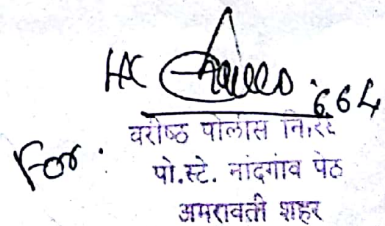 HC 664
For.
वरीष्ठ पोलीस निरि
पो.स्टे. नांदगाव पेठ
अमरावती शहर